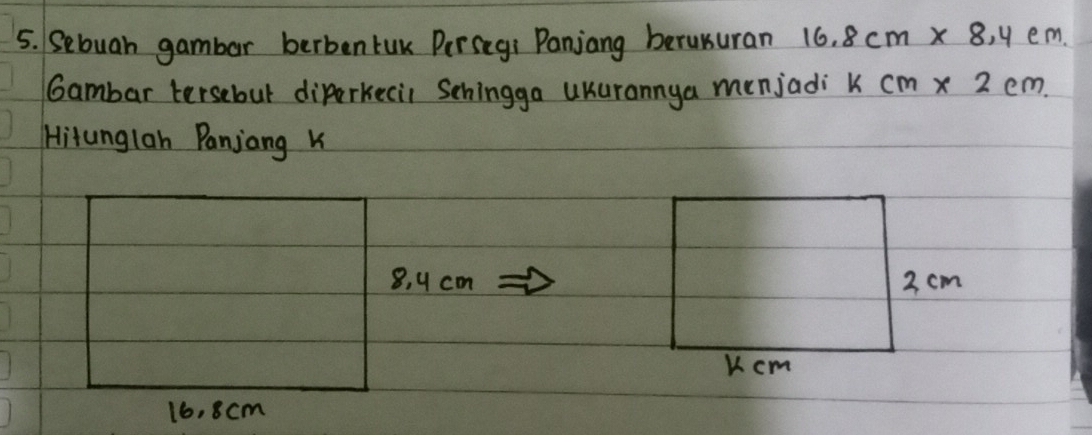 5. Sebuah gambar berbentuk Persegi Panjang berukuran 16,8 cm x 8,4 cm.
Gambar tersebut diperkecil Sehingga ukurannya menjadi k cm x 2 cm.
Hitunglah Panjang k
8,4 cm ⇒ 2 cm
k cm
16,8 cm